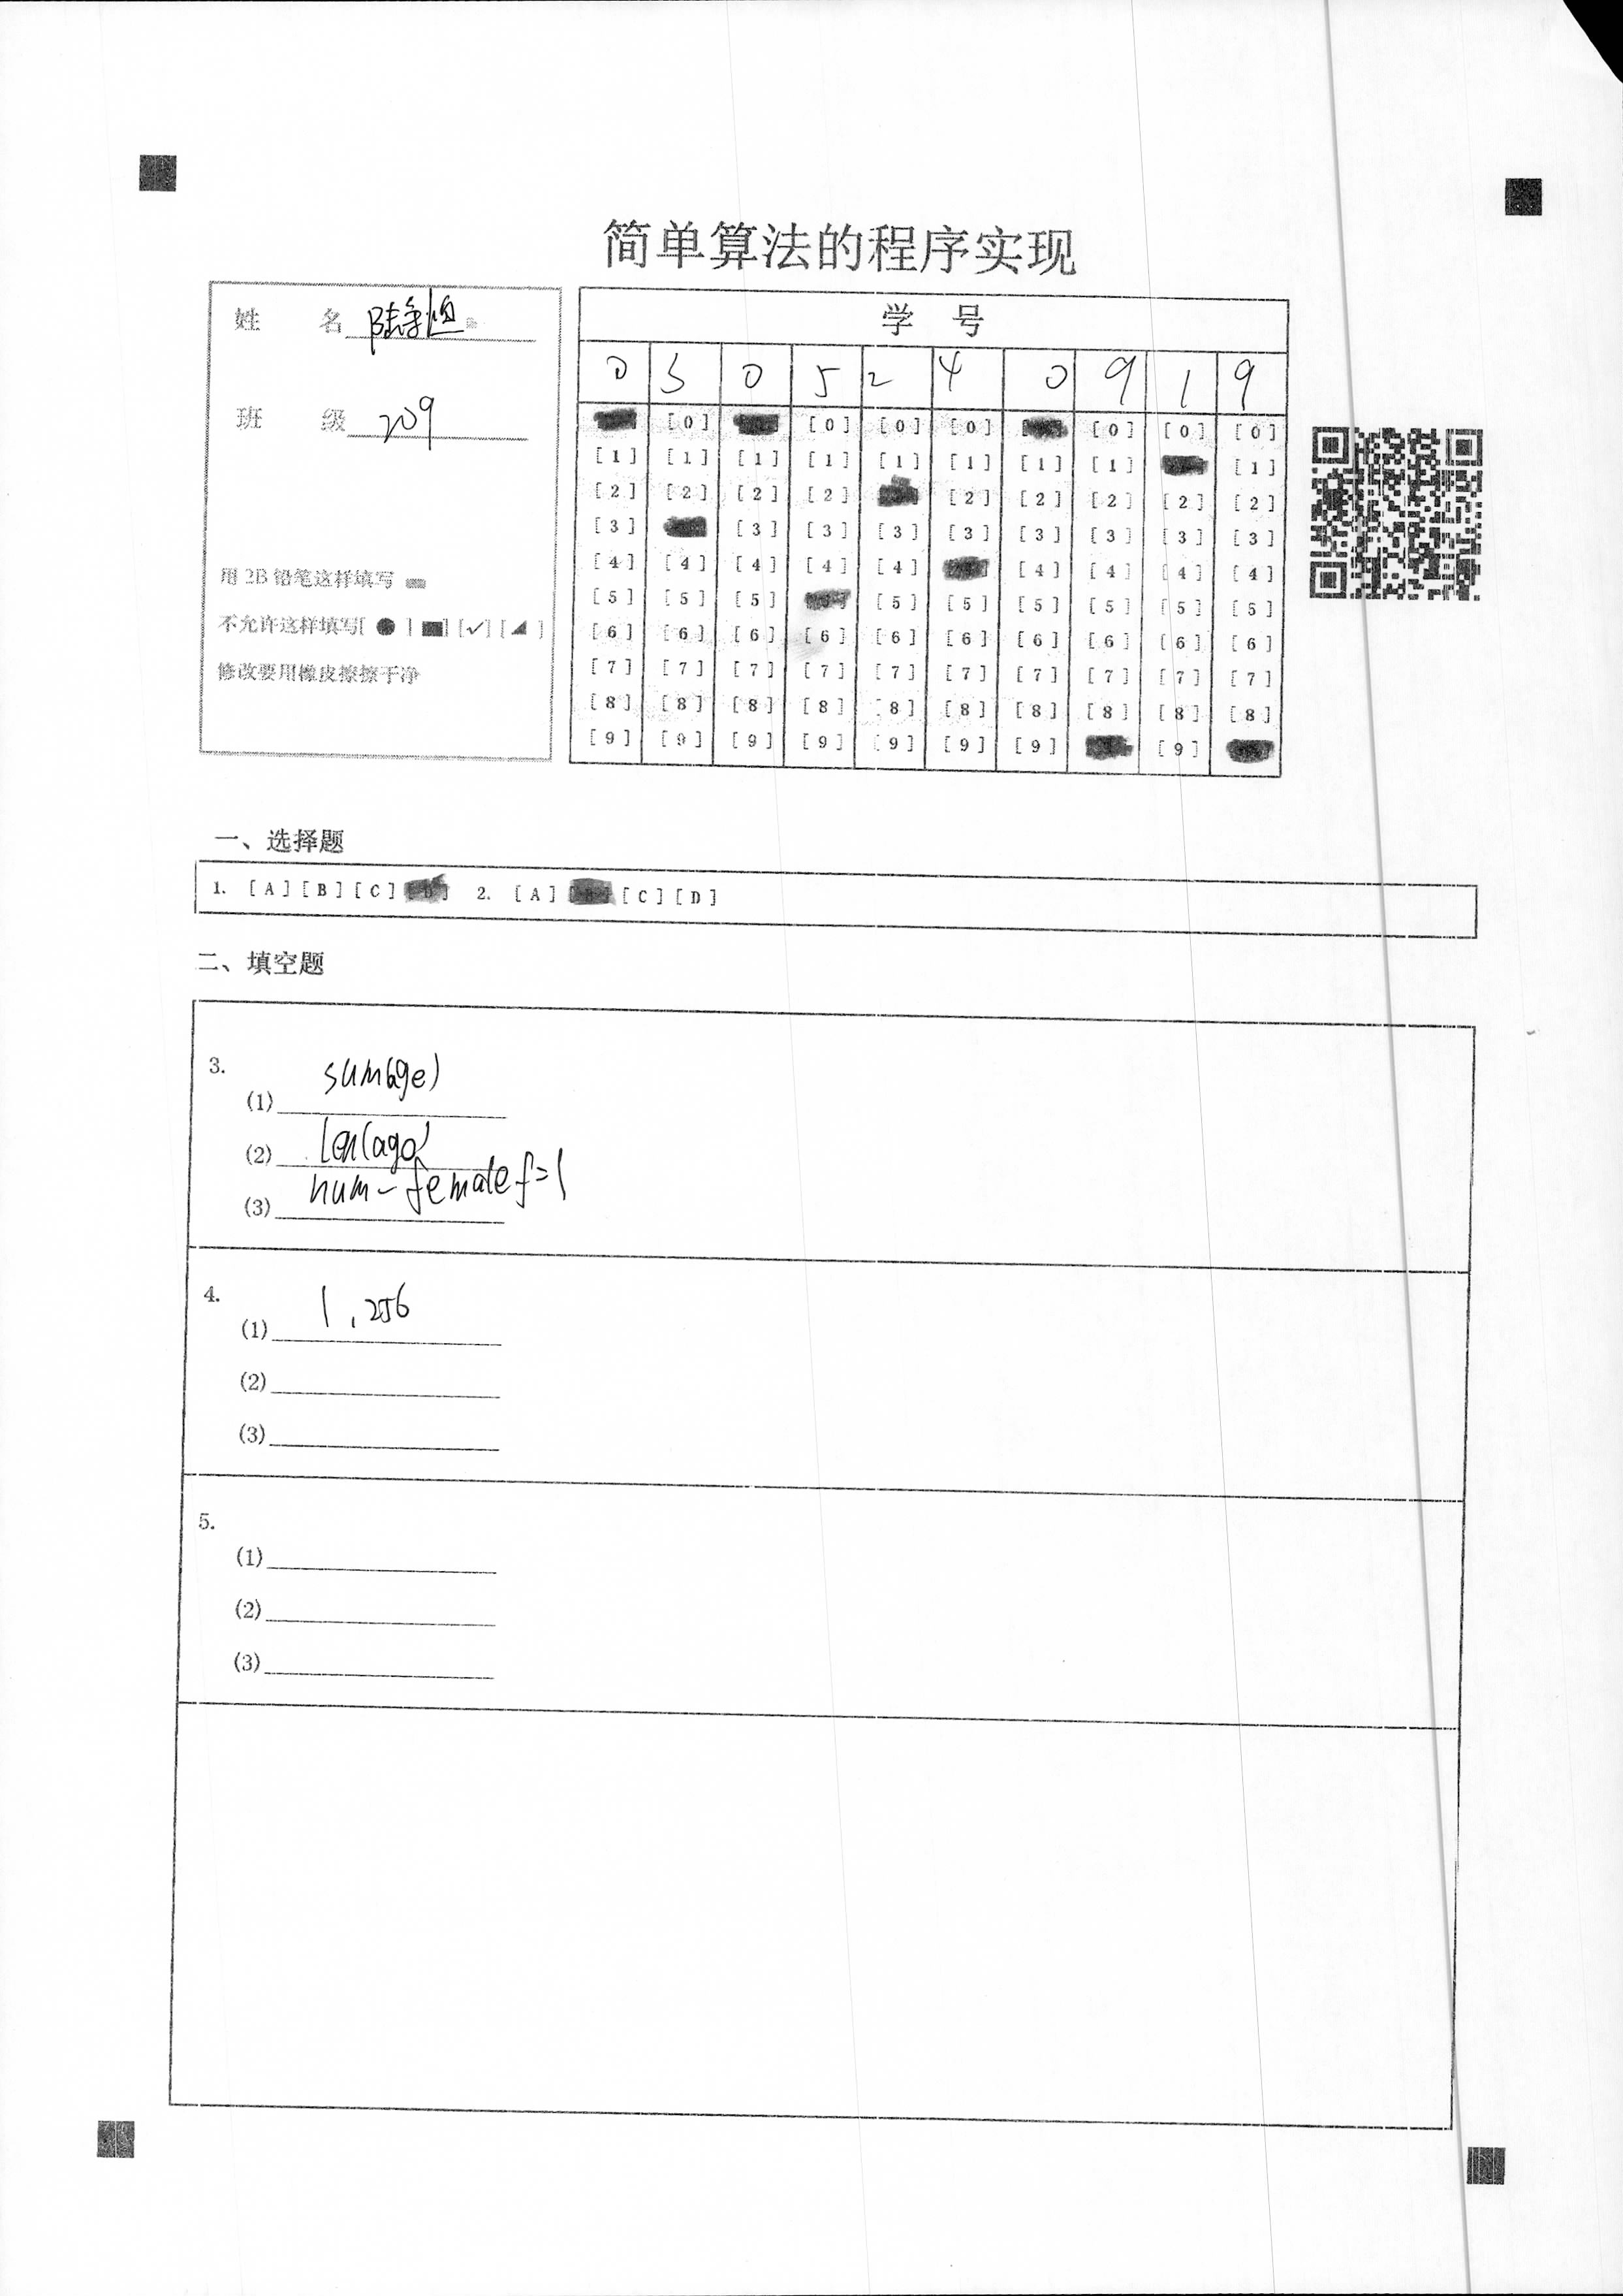 简单算法的程序实现
姓 名
班 级 209
用2B铅笔这样填写
不允许这样填写[●][■][✓][◢]
修改要用橡皮擦擦干净
学 号
0 3 0 5 2 4 0 9 1 9
[0] [0] [0] [0] [0] [0] [0]
[1] [1] [1] [1] [1] [1] [1] [1] [1]
[2] [2] [2] [2] [2] [2] [2] [2] [2]
[3] [3] [3] [3] [3] [3] [3] [3] [3]
[4] [4] [4] [4] [4] [4] [4] [4] [4]
[5] [5] [5] [5] [5] [5] [5] [5] [5]
[6] [6] [6] [6] [6] [6] [6] [6] [6] [6]
[7] [7] [7] [7] [7] [7] [7] [7] [7] [7]
[8] [8] [8] [8] [8] [8] [8] [8] [8] [8]
[9] [9] [9] [9] [9] [9] [9] [9]
一、选择题
1. [A] [B] [C] [D] 2. [A] [B] [C] [D]
二、填空题
3.
(1) sum(age)
(2) len(age)
(3) num-female f=1
4.
(1) 1,256
(2)
(3)
5.
(1)
(2)
(3)